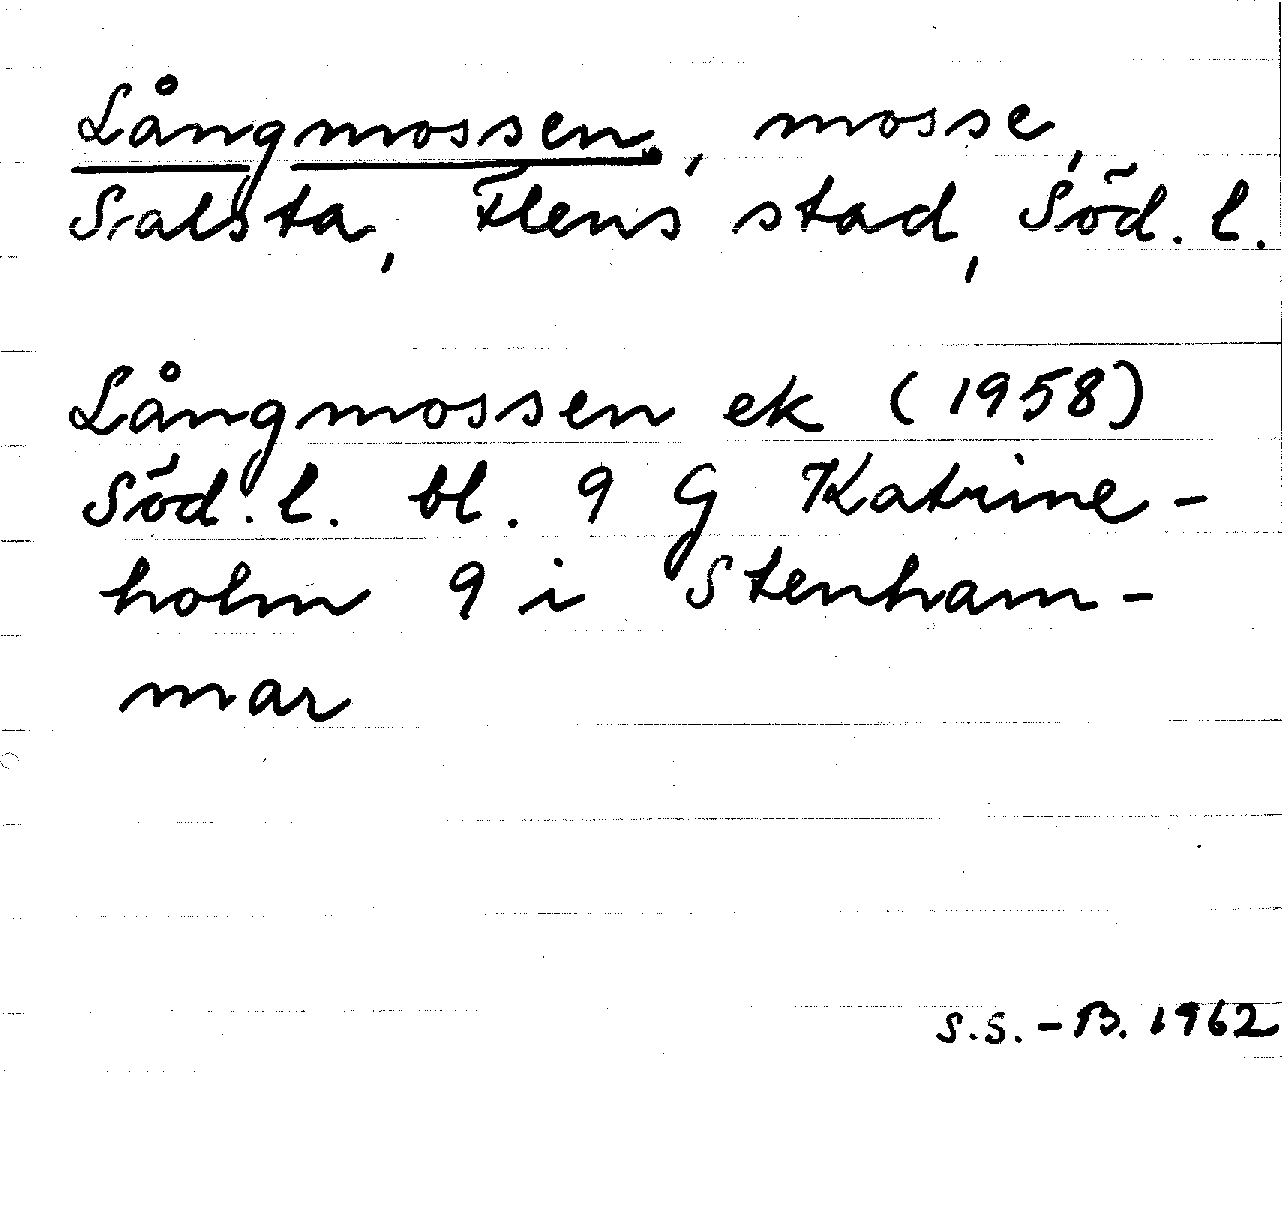 Långmossen, mosse,
Salsta, Flens stad, Söd. l.
Långmossen ek (1958)
Söd. l. bl. 9 G Katrine-
holm 9 i Stenham-
mar
S.S.-B. 1962